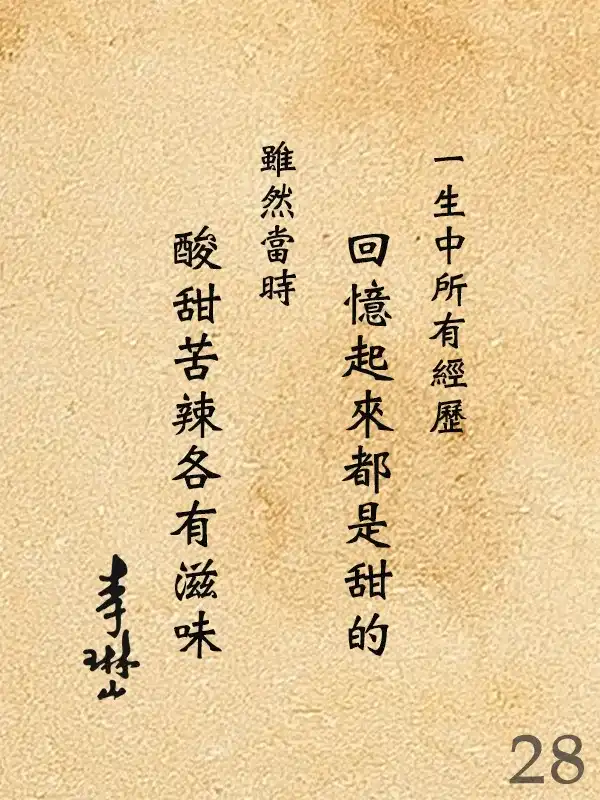 一生中所有經歷
回憶起來都是甜的
雖然當時
酸甜苦辣各有滋味
李琳山
28